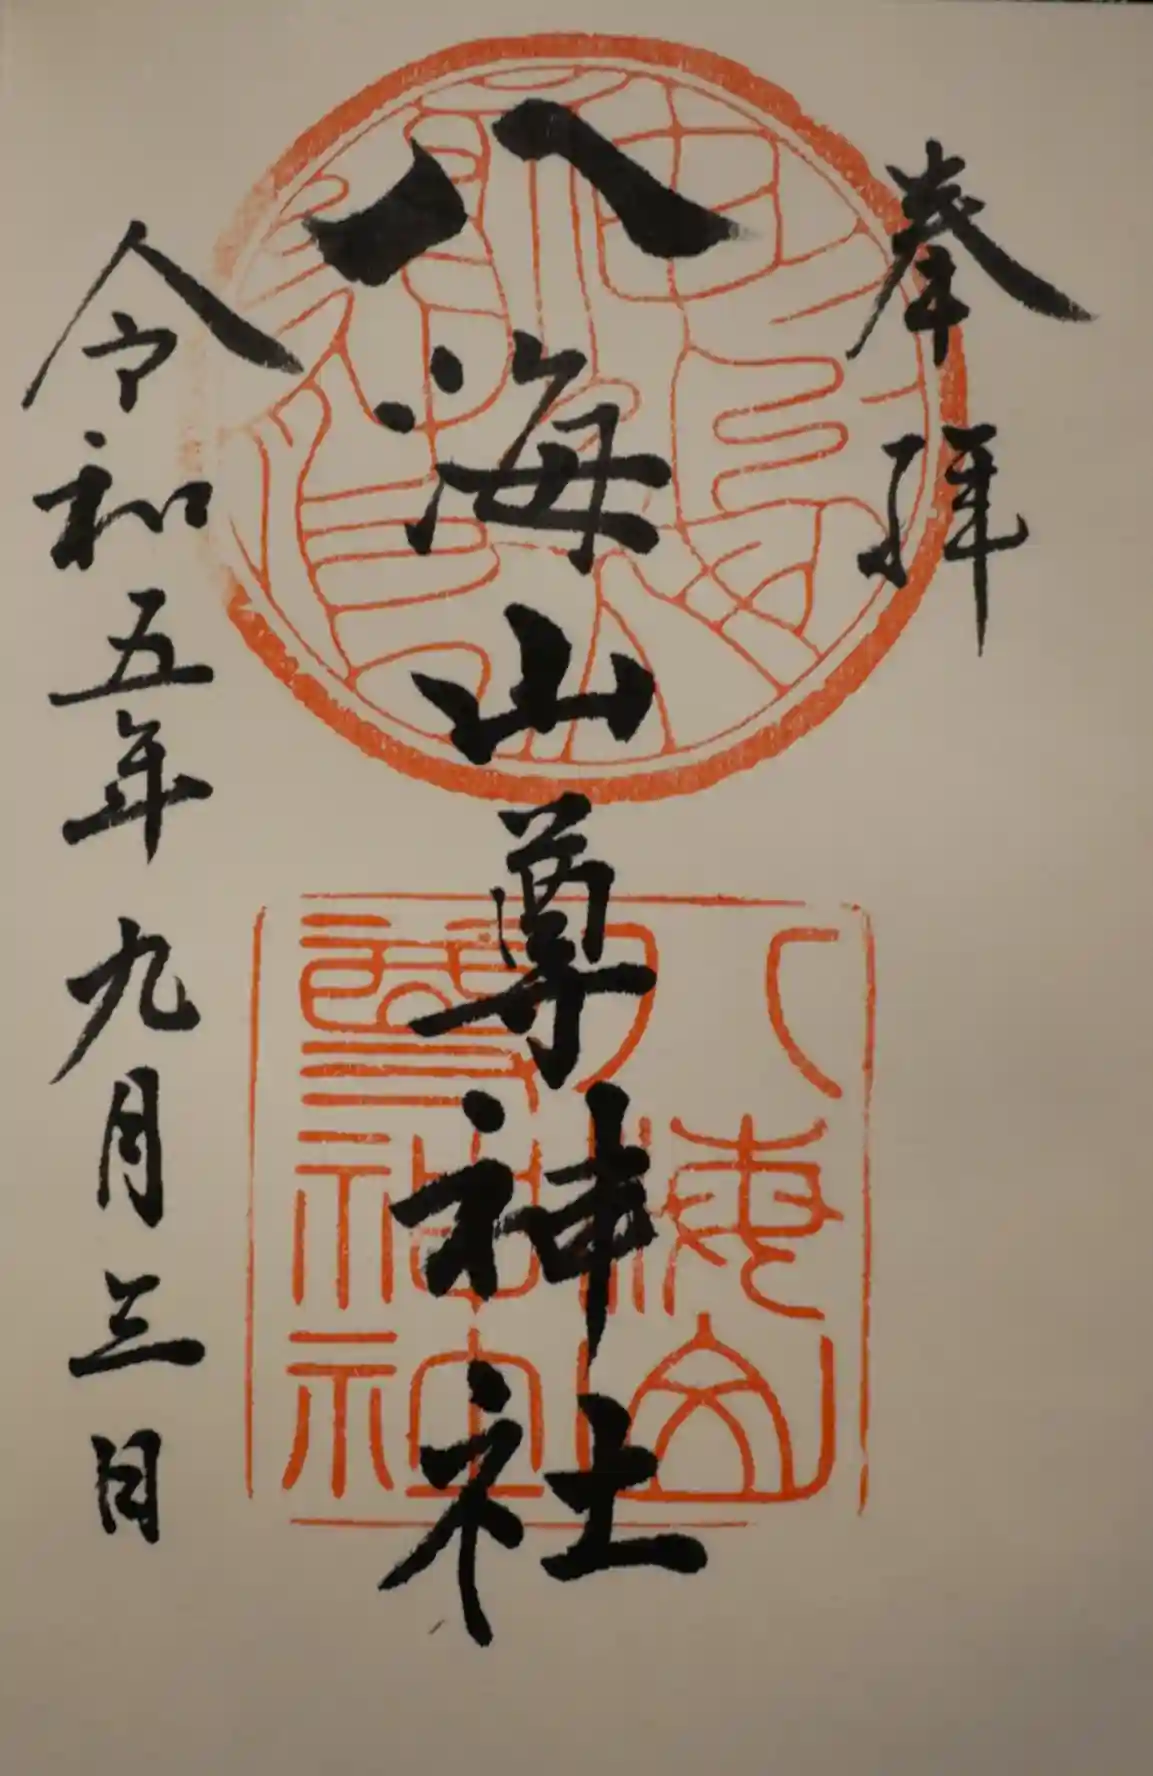 奉拝
八海山尊神社
令和五年九月三日
八海山
尊神社